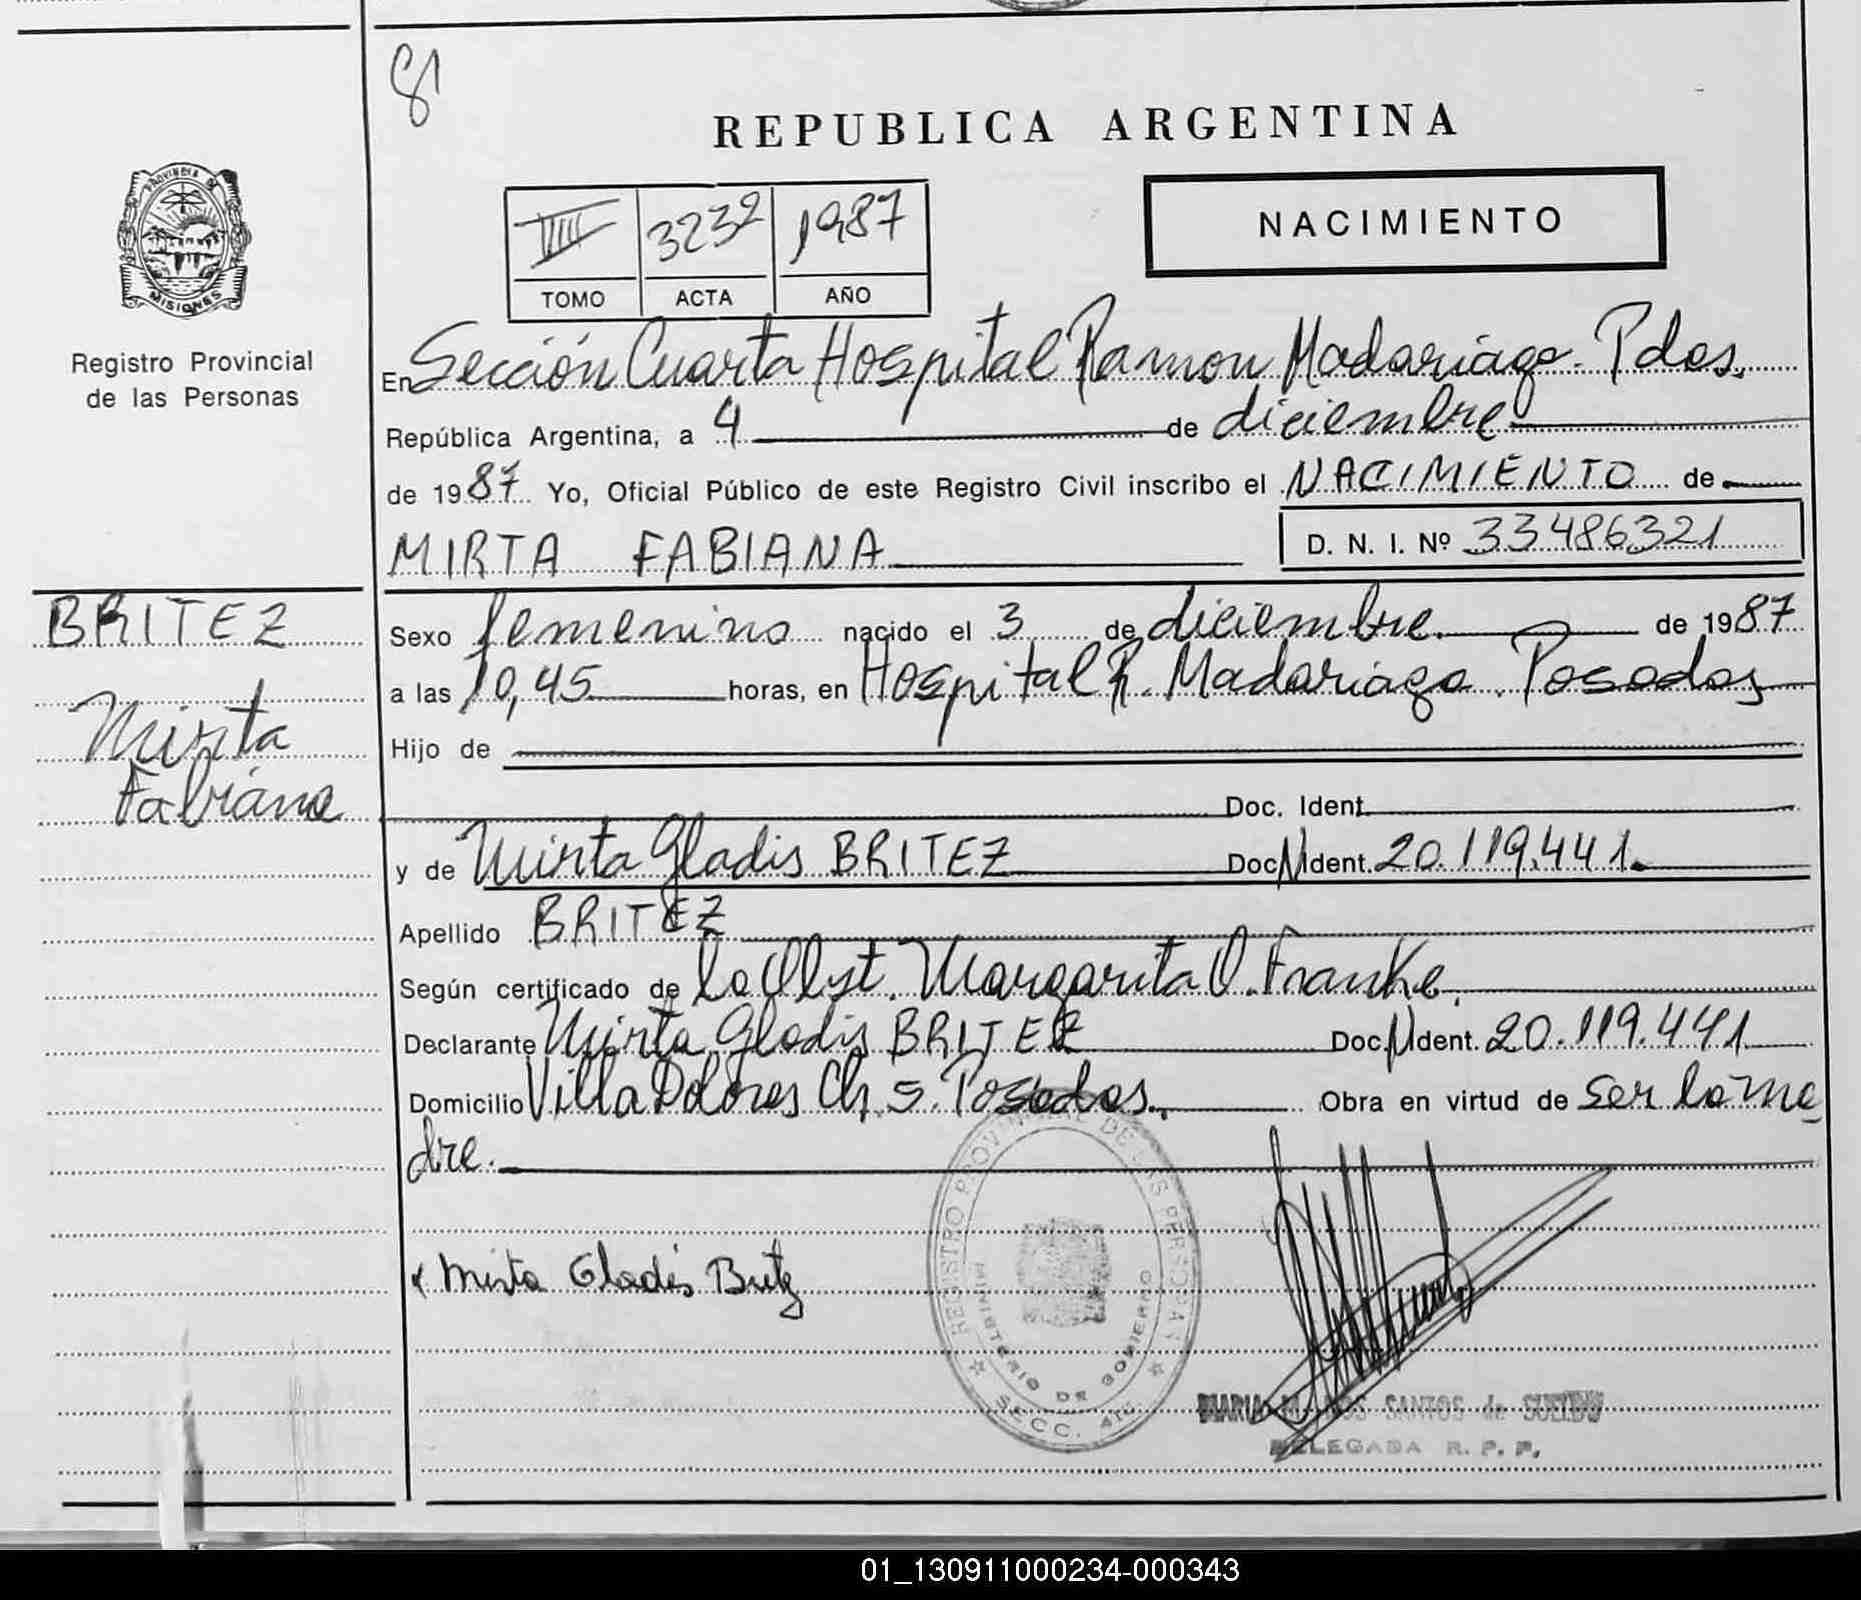 81
REPUBLICA ARGENTINA
PROVINCIA DE
MISIONES
Registro Provincial
de las Personas
VIII 3232 1987
TOMO ACTA AÑO
NACIMIENTO
En Sección Cuarta Hospital Ramon Madariaga. Pdas.
República Argentina, a 4 de diciembre
de 1987 Yo, Oficial Público de este Registro Civil inscribo el NACIMIENTO de
MIRTA FABIANA D. N. I. Nº 33486321
BRITEZ
Mirta
Fabiana
Sexo femenino nacido el 3 de diciembre de 1987
a las 10,45 horas, en Hospital R. Madariaga. Posadas
Hijo de
Doc. Ident.
y de Mirta Gladis BRITEZ Doc N Ident. 20.119.441.
Apellido BRITEZ
Según certificado de la Obst. Margarita O. Franke.
Declarante Mirta Gladis BRITEZ Doc. N Ident. 20.119.441
Domicilio Villa Dolores Ch. 5. Posadas. Obra en virtud de ser la ma
dre.
Mirta Gladis Britez
REGISTRO PROVINCIAL DE LAS PERSONAS
MINISTERIO DE GOBIERNO
SECC. 4ta.
MARIA DOS SANTOS de SUELDO
DELEGADA R. P. P.
01_130911000234-000343